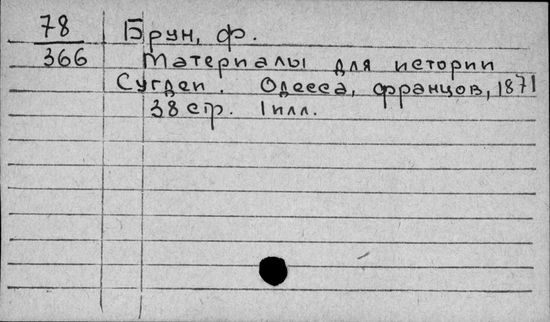 78 Брун, Ф.
366 Материалы для истории
Сугдеи. Одесса, Францов, 1871
38 стр. 1 илл.